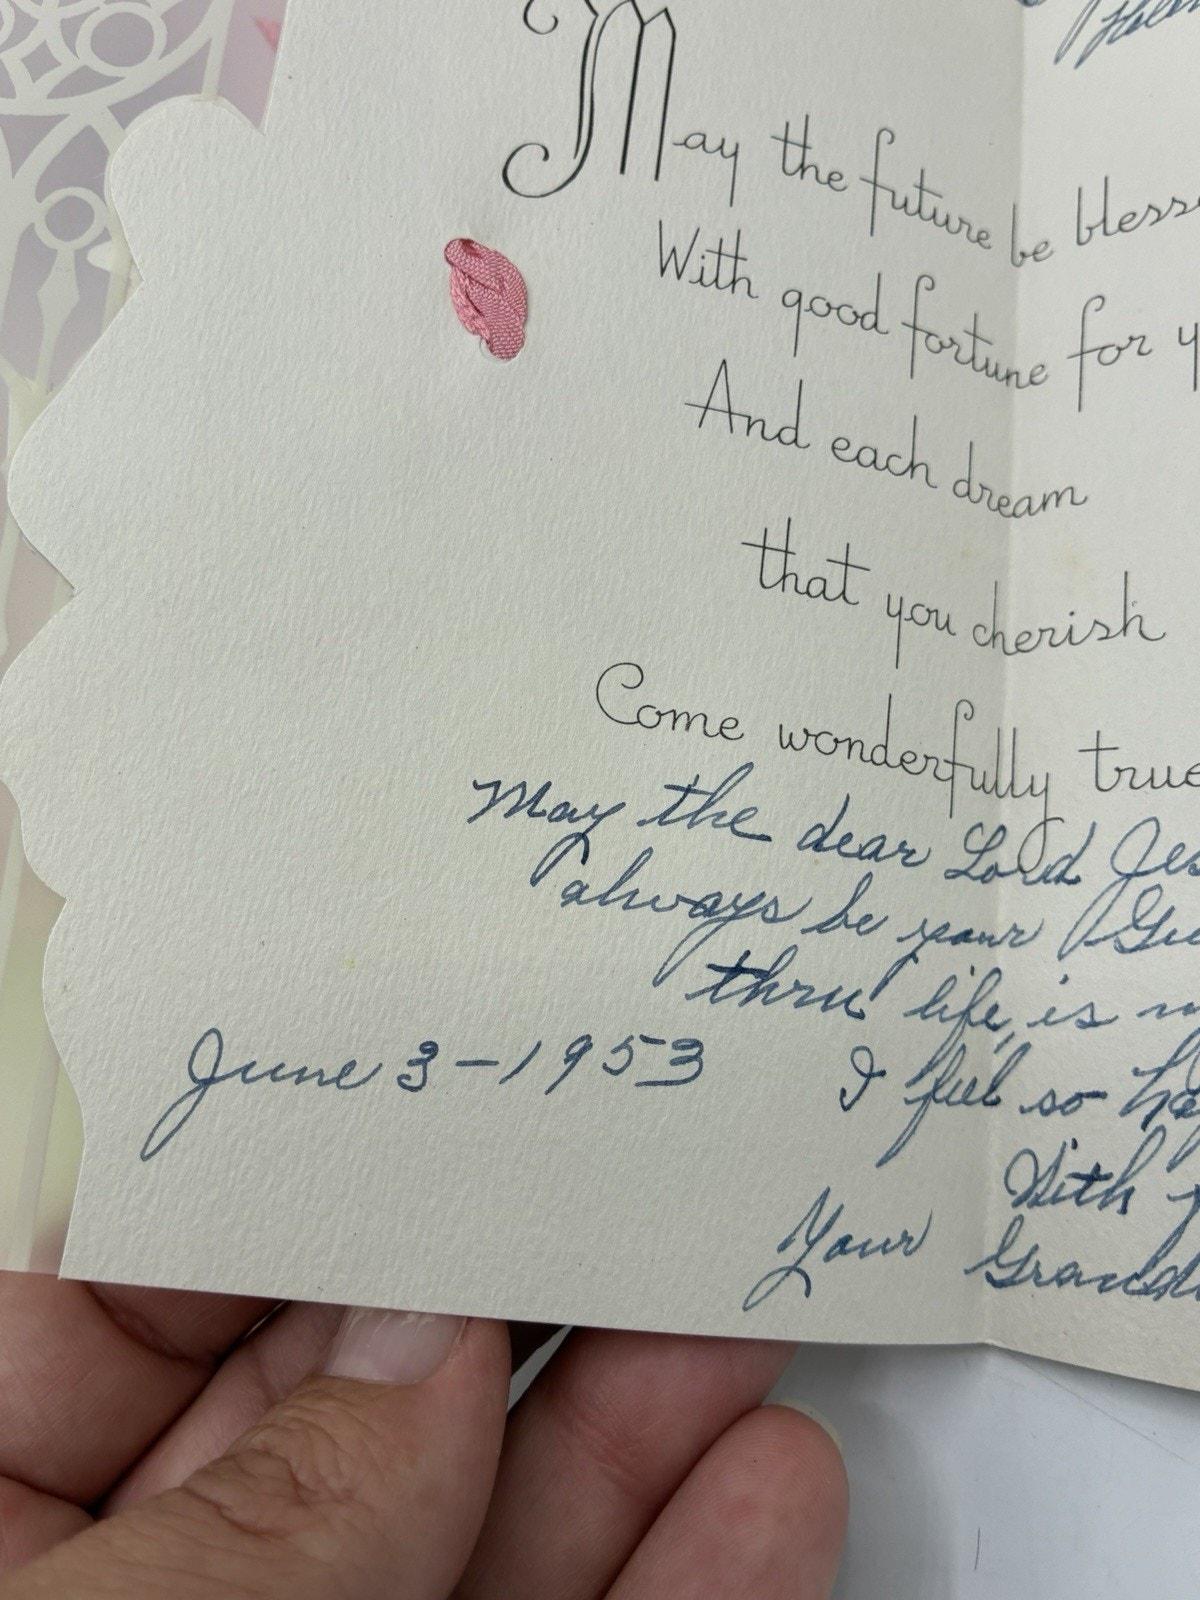 May the future be
With good fortune for
And each dream
that you cherish
Come wonderfully true
May the dear Lord
always be your
thru life, is
June 3-1953 I feel so
With
Your